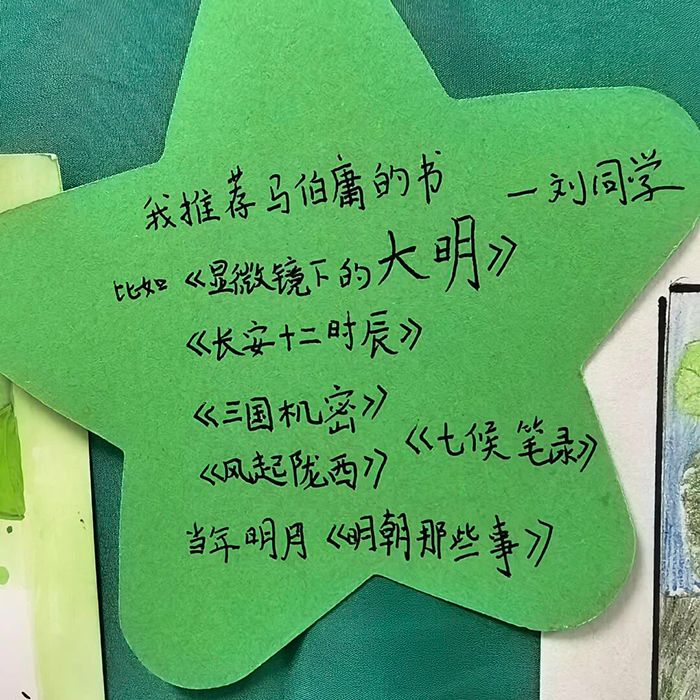 我推荐马伯庸的书 一刘同学
比如《显微镜下的大明》
《长安十二时辰》
《三国机密》
《七候笔录》
《风起陇西》
当年明月《明朝那些事》